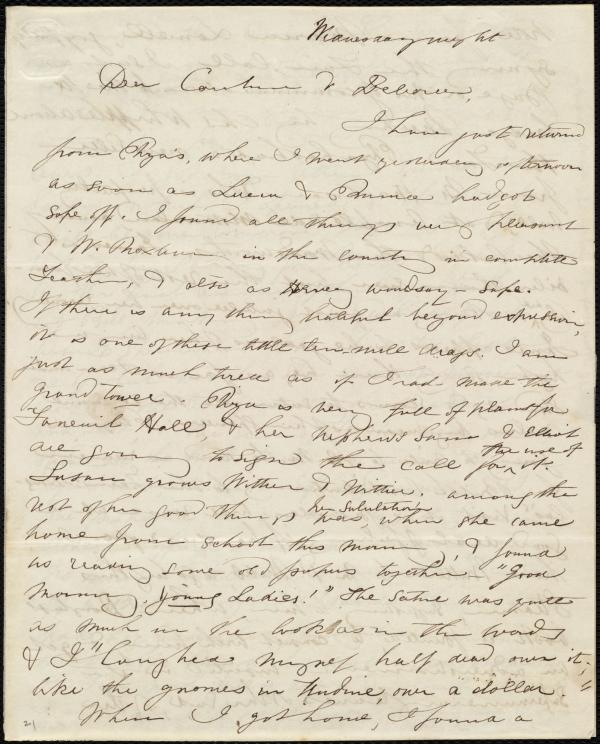 Wednesday night
Dear Caroline & Deborah,
I have just returned
from Eliza's, where I went yesterday afternoon
as soon as Lucia & Emma had got
safe off. I found all things very pleasant
& W. Roxbury in the country in complete
feather, & also as Harvey would say - safe.
If there is any thing hateful beyond expression,
it is one of these little ten-mile drags. I am
just as much tired as if I had made the
grand tower. Eliza is very full of plans for
Faneuil Hall, & her nephews Sam & Eliot
are going to sign the call for the use of it.
Susan grows Wittier & Wittier. among the
rest of her good things was her salutation, when she came
home from school this morning, & found
us reading some old papers together "Good
morning young Ladies!" The satire was quite
as much in the look as in the words
& I "laughed myself half dead over it,
like the gnomes in Undine, over a dollar."
When I got home, I found a
21